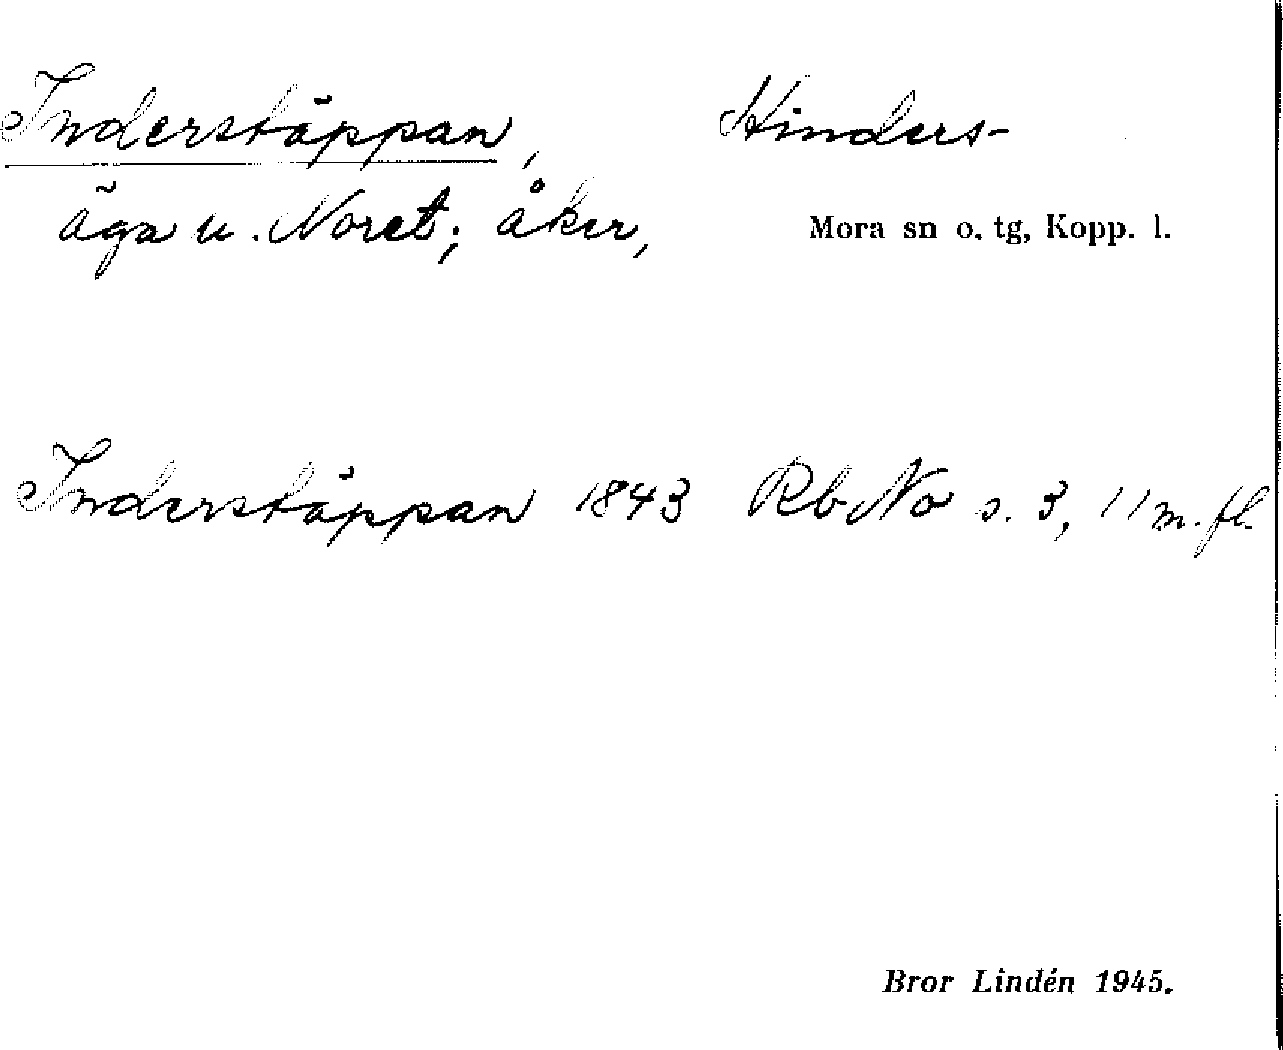 Inderstäppan, Hinders-
äga u. Noret; åker,
Mora sn o. tg, Kopp. l.
Inderstäppan 1843 Rb No s. 3, 11 m. fl.
Bror Lindén 1945.